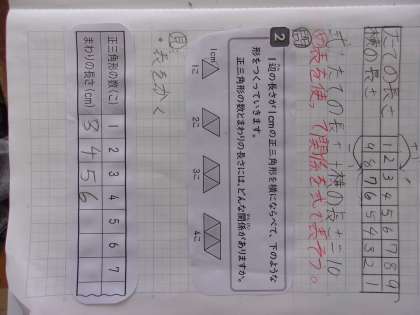 たての長さ 1 2 3 4 5 6 7 8 9
横の長さ 9 8 7 6 5 4 3 2 1
式 たての長さ+横の長さ=10
の表を使って関係を式で表そう。
2 1辺の長さが1cmの正三角形を横にならべて、下のような
形をつくっていきます。
正三角形の数とまわりの長さには、どんな関係がありますか。
1cm
1こ 2こ 3こ 4こ
見
・表をかく
正三角形の数(こ) 1 2 3 4 5 6 7
まわりの長さ(cm) 3 4 5 6